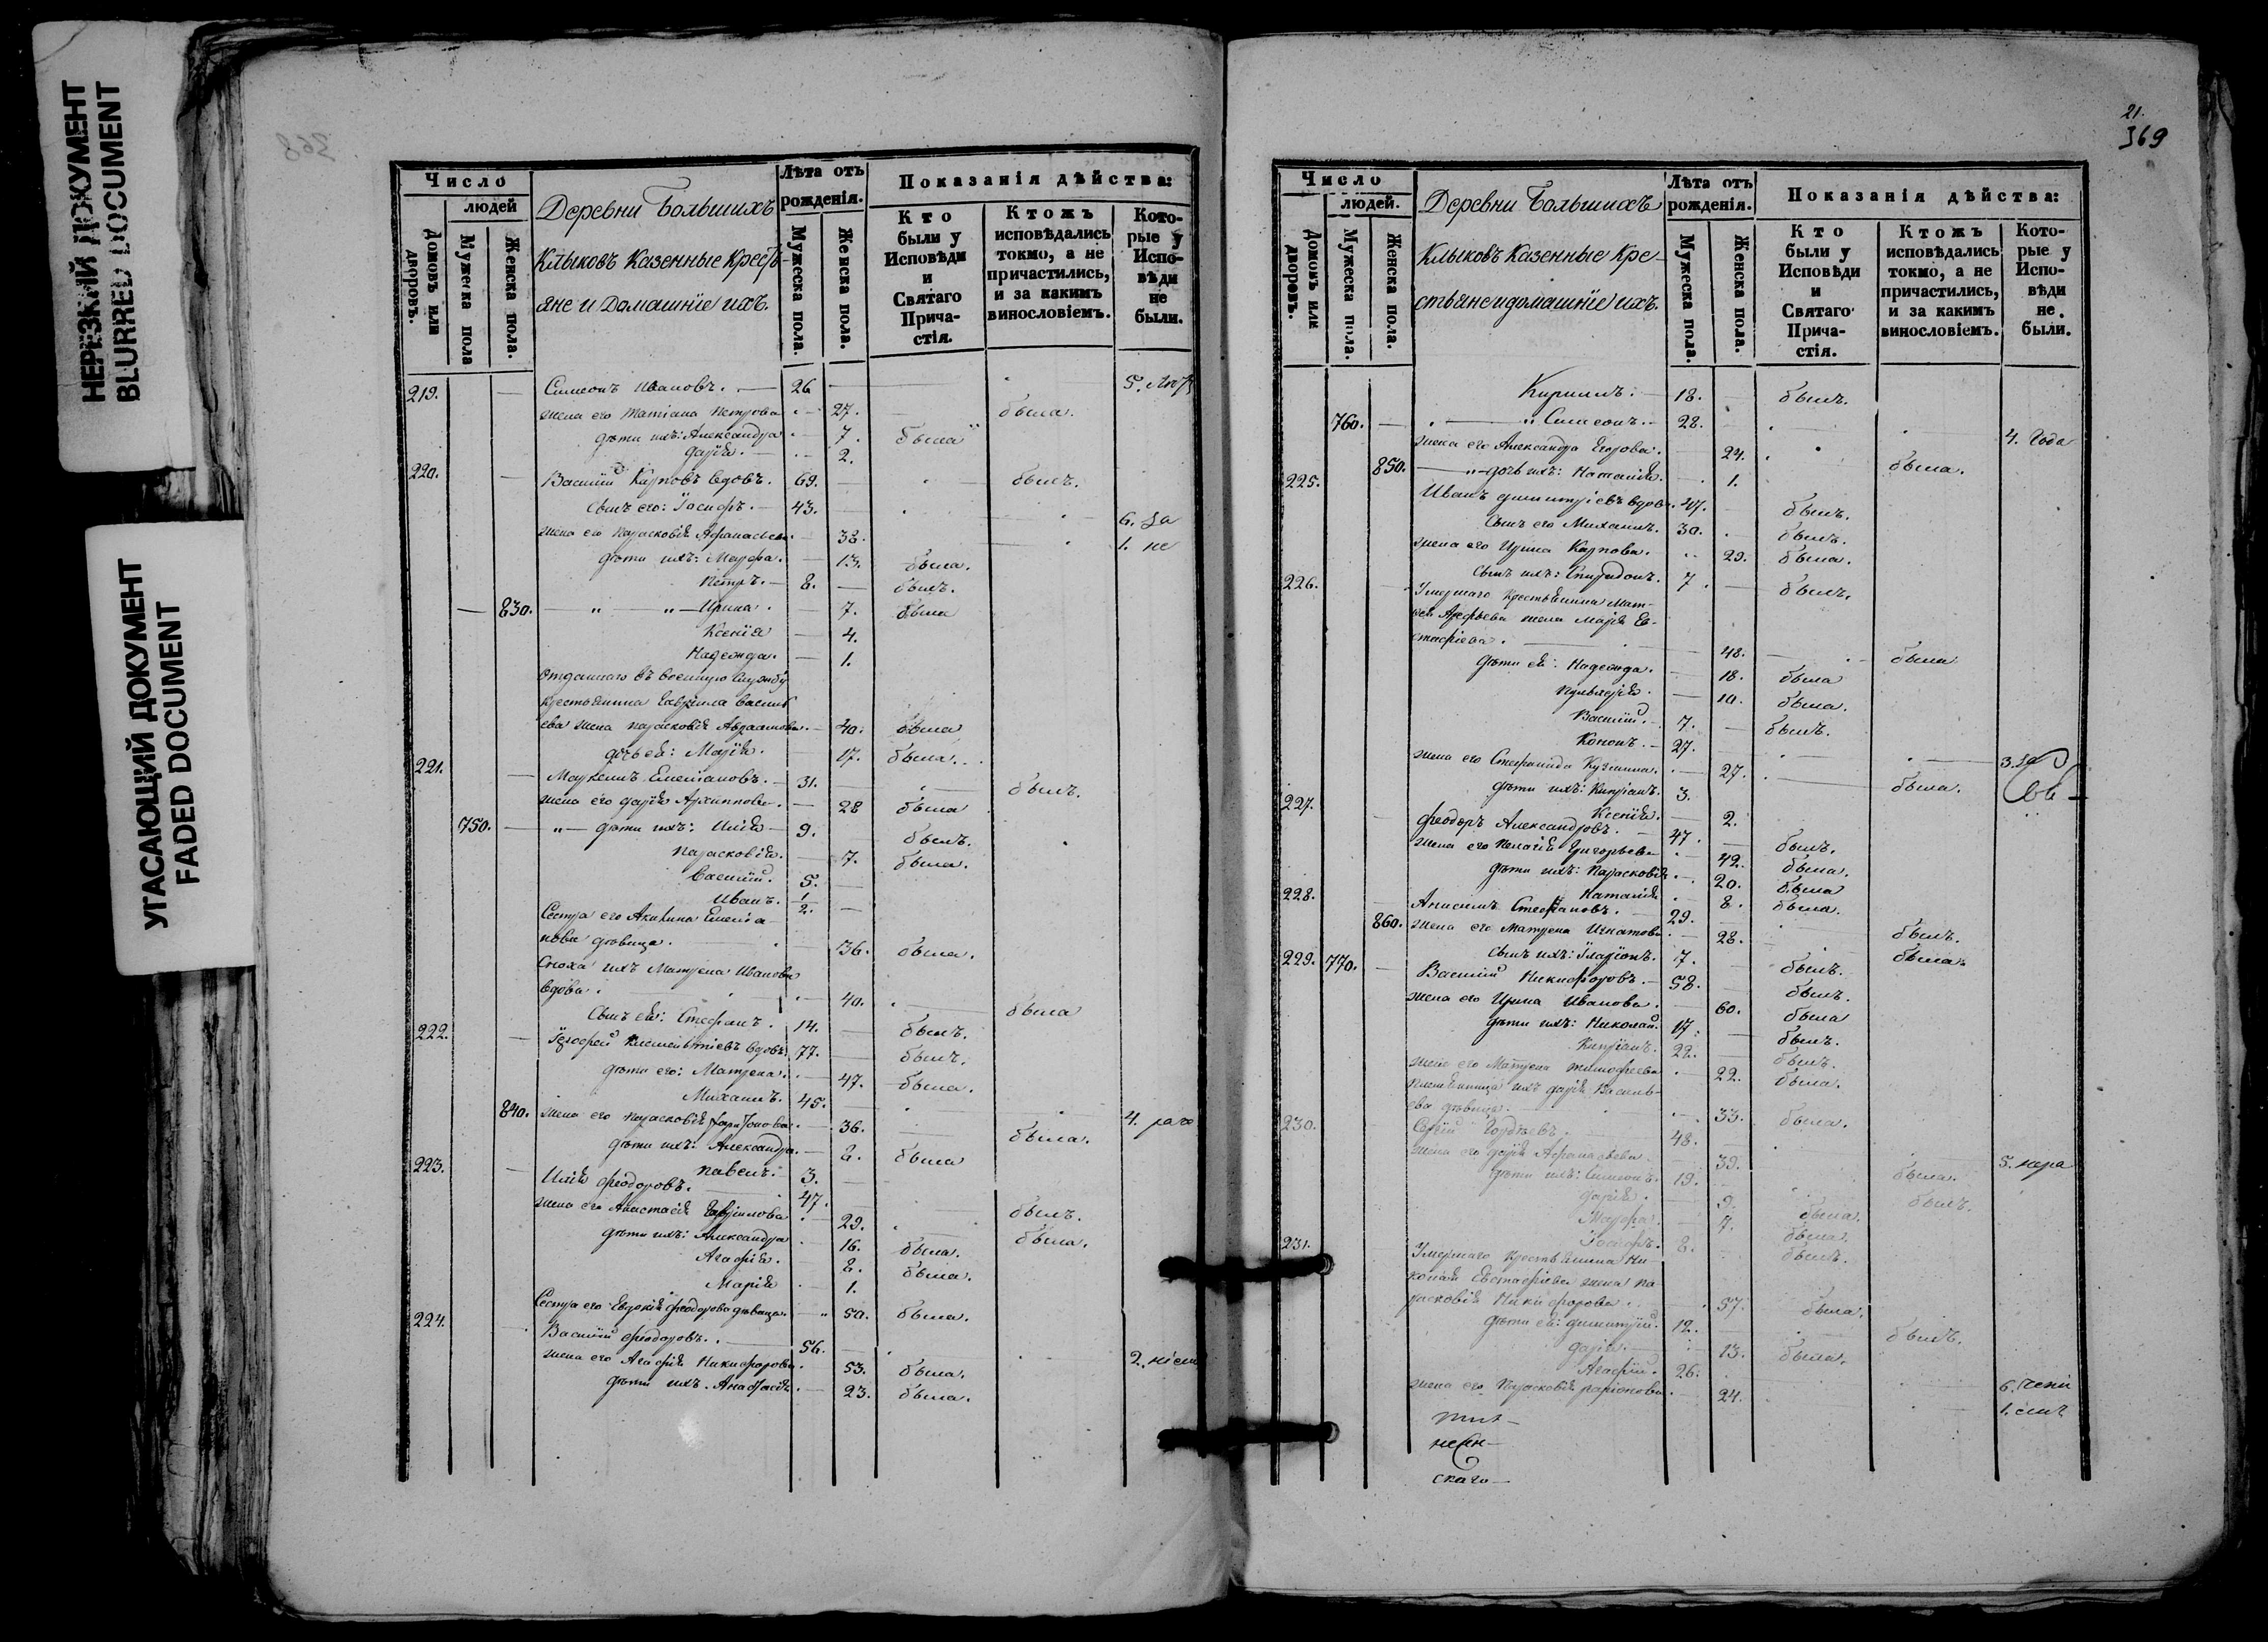 НЕРЕЗКИЙ ДОКУМЕНТ
BLURRED DOCUMENT
УГАСАЮЩИЙ ДОКУМЕНТ
FADED DOCUMENT
368
Число
людей
Домовъ или дворовъ.
Мужеска пола
Женска пола.
Деревни Большихъ
Клыковъ Казенные Крест-
яне и Домашнiе ихъ.
Лѣта отъ рожденiя.
Мужеска пола.
Женска пола.
Показанiя дѣйства:
Кто были у Исповѣди и Святаго Прича-стiя.
Ктожъ исповѣдались токмо, а не причастились, и за какимъ винословiемъ.
Кото-рые у Испо-вѣди не были.
219. — Симеонъ Ивановъ. — 26
жена его Татiана Петрова 27. была.
дѣти ихъ: Александра 7. была
Дарiя. 2.
220. — Василiй Карповъ вдовъ. 69. былъ.
Сынъ его: Iосифъ. — 43. 6. за
жена его Парасковiя Афанасьева 38. 1. не
дѣти ихъ: Марфа. — 13. была.
Петръ. — 8. — былъ.
— 830. — Ирина. 7. была
Ксенiя — 4.
Надежда. — 1.
Отданнаго въ военную службу
крестьянина Гаврила Василь
ева жена Парасковiя Авраамова. — 40. была
дочь ея: Марiя. 17. была.
221. — Маркелъ Емелiановъ. — 31. былъ.
жена его Дарiя Архиппова. — 28 была
750. — дѣти ихъ: Илiя — 9. былъ.
Парасковiя. 7. была.
Василiй. 5. —
Иванъ. 1/2. —
Сестра его Акилина Емелiа-
нова дѣвица. 36. была.
Сноха ихъ Матрена Иванова
вдова. — 40. была
Сынъ ея: Стефанъ. 14. — былъ.
222. — вдовъ 77. — былъ.
дѣти его: Матрена. — 47. была.
Михаилъ. 45.
840. жена его Парасковiя 36. была. 4.
дѣти ихъ: Александра. — 8. была
Павелъ. — 3. —
223. — Илiя Феодоровъ. 47. былъ.
жена его Анастасiя Гаврилова 29. была.
дѣти ихъ: Александра 16. была.
Агафiя. 8. была.
Марiя 1.
Сестра его Евдокiя Феодорова дѣвица. 50. была.
224. Василiй Феодоровъ. — 56. — 2.
жена его Агафiя Никифорова. 53. была.
дѣти ихъ. Анастасiя. — 23. была.
21.
369
Число
людей.
Домовъ или дворовъ.
Мужеска пола.
Женска пола.
Деревни Большихъ
Клыковъ Казенные Кре-
стьяне и домашнiе ихъ.
Лѣта отъ рожденiя.
Мужеска пола.
Женска пола.
Показанiя дѣйства:
Кто были у Исповѣди и Святаго Прича-стiя.
Ктожъ исповѣдались токмо, а не причастились, и за какимъ винословiемъ.
Кото-рые у Испо-вѣди не. были.
Кириллъ. — 18. — былъ.
760. — Симеонъ. — 28. 4. года
жена его Александра Егорова. 24. была.
850. — дочь ихъ: Наталiя. 1.
225. Иванъ Димитрiевъ вдовъ. 47. былъ.
Сынъ его Михаилъ. 30. былъ.
жена его Ирина Карпова. 29. была.
Сынъ ихъ: Спиридонъ. 7. — былъ.
226. Умершаго крестьянина Мат-
вея Арефьева жена Марiя Ев-
стафiева. — 48. была
дѣти ея: Надежда. — 18. была
Пульхерiя. — 10. была.
Василiй. — 7. — былъ.
Кононъ. — 27. 3. за
жена его Стефанида Кузмина. — 27. была.
дѣти ихъ: Кипрiанъ. 3.
Ксенiя. 2.
227. Феодоръ Александровъ. — 47. — былъ.
жена его Пелагiя Григорьева 42. была.
дѣти ихъ: Парасковiя 20. была
Наталiя 8. была.
228. Анисимъ Стефановъ. — 29. былъ.
860. жена его Матрена Игнатова — 28. была.
Сынъ ихъ: Iларiонъ. 7. былъ.
229. 770. — Василiй Никифоровъ. — 58. былъ.
жена его Ирина Иванова. 60. была
дѣти ихъ: Николай. 17. — былъ.
Кипрiанъ. 22. былъ.
жена его Матрена Тимофеева 22. была.
племянница ихъ Дарiя Василь-
ева дѣвица. 33. была.
230. Сергiй Гордѣевъ. 48. 5.
жена его Дарiя Афанасьева 39. была.
дѣти ихъ: Симеонъ. 19. былъ.
Дарiя. 9. была.
Марфа. 7. была.
Iосифъ. 8. былъ.
231. Умершаго крестьянина Ни-
колая Евстафiева жена Па-
расковiя Никифорова. 57. была.
дѣти ея: Димитрiй. 12. былъ.
Дарiя. 13. была.
26. 6.
жена его Парасковiя 24. 1.